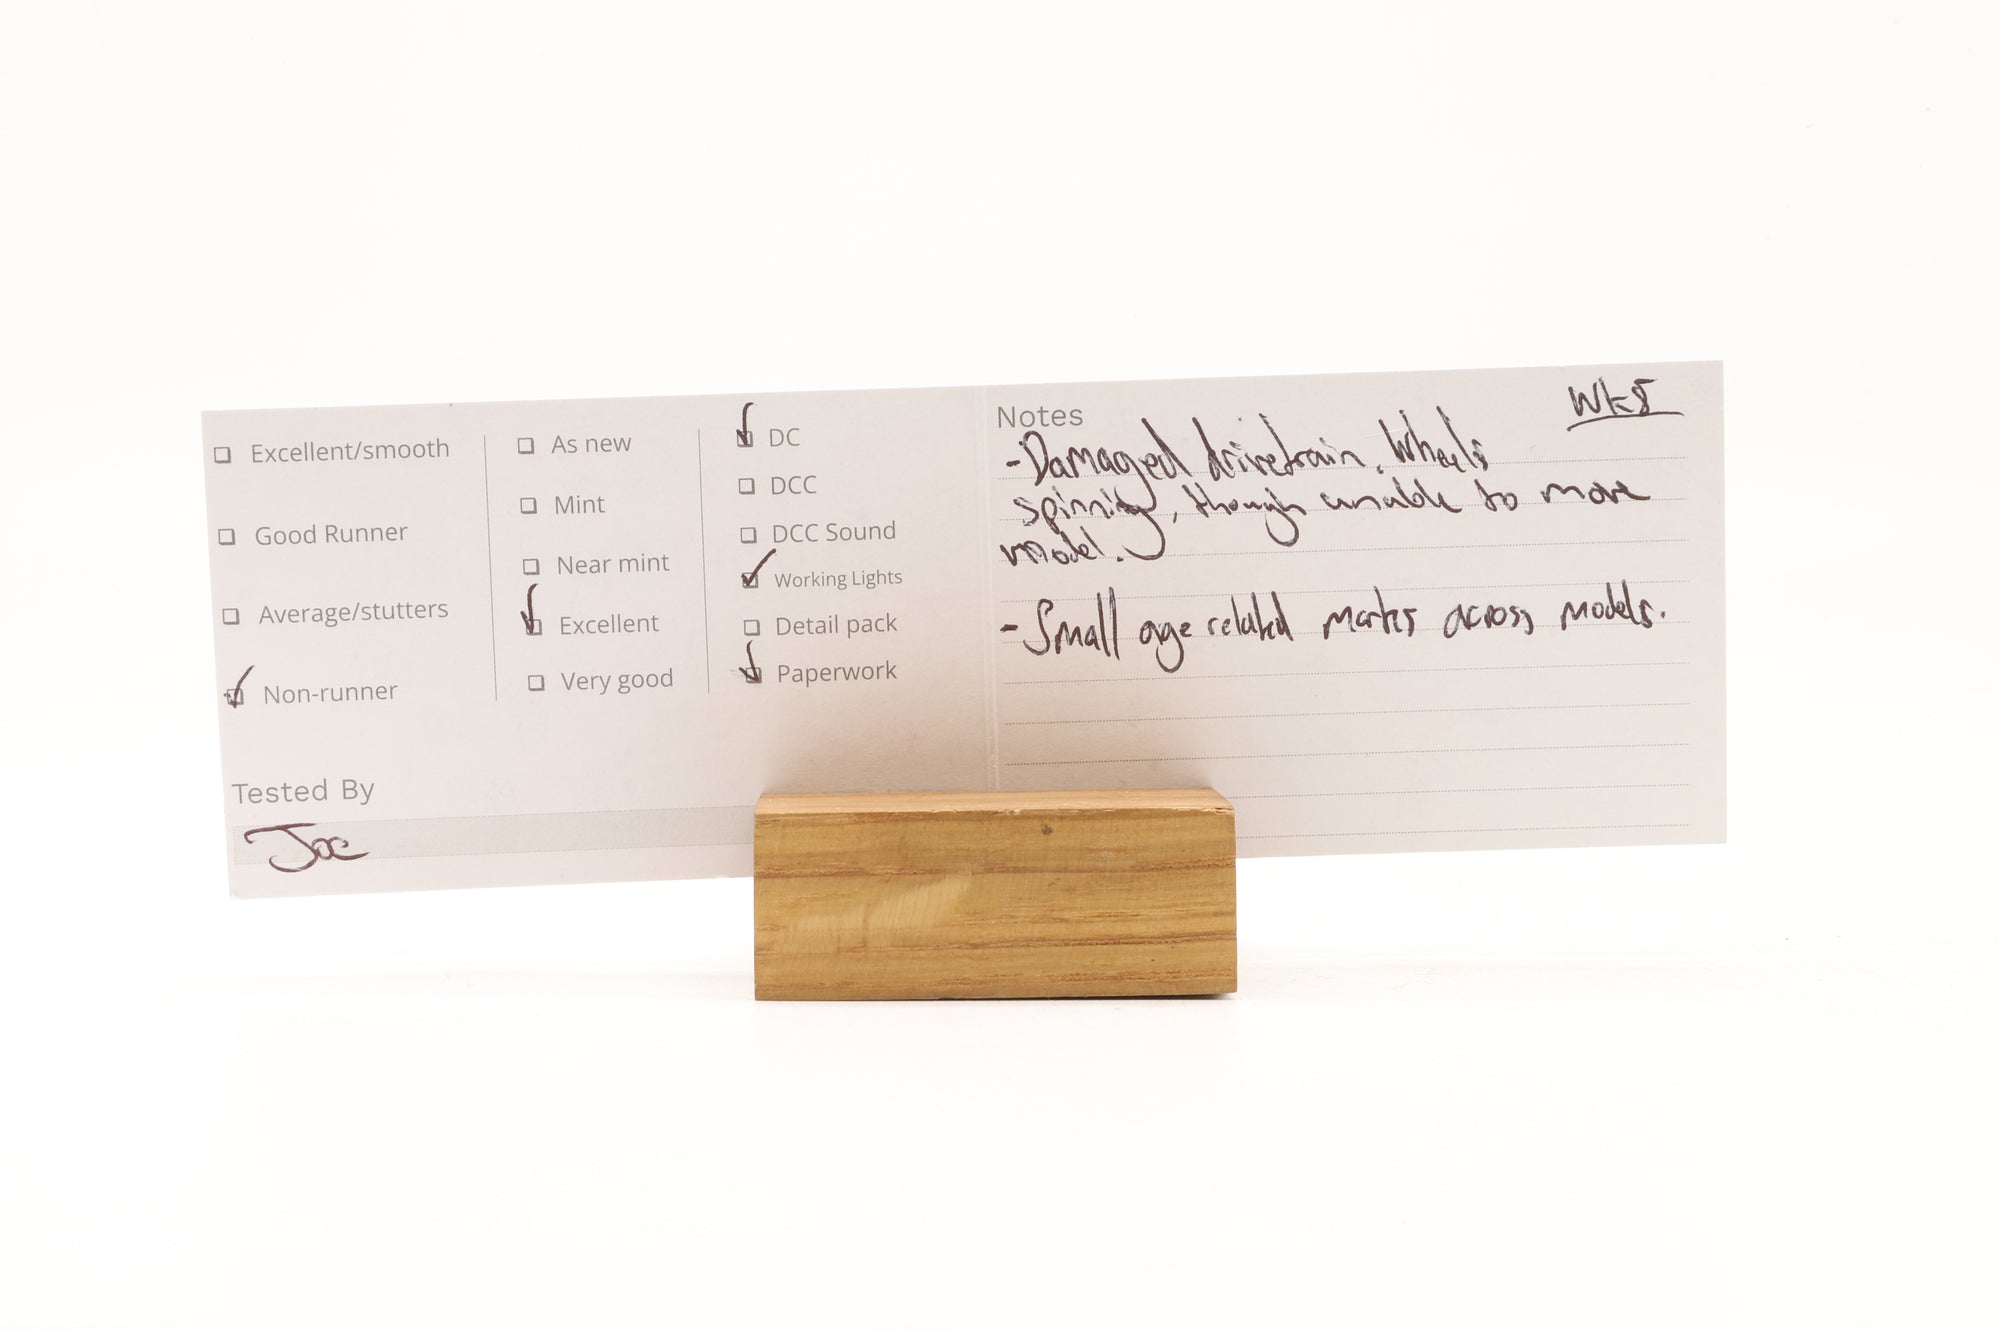 Excellent/smooth
Good Runner
Average/stutters
Non-runner
Tested By
Joe
As new
Mint
Near mint
Excellent
Very good
DC
DCC
DCC Sound
Working Lights
Detail pack
Paperwork
Notes
WK8
-Damaged drivetrain. Wheels
spinning, though unable to move
model.
-Small age related marks across models.